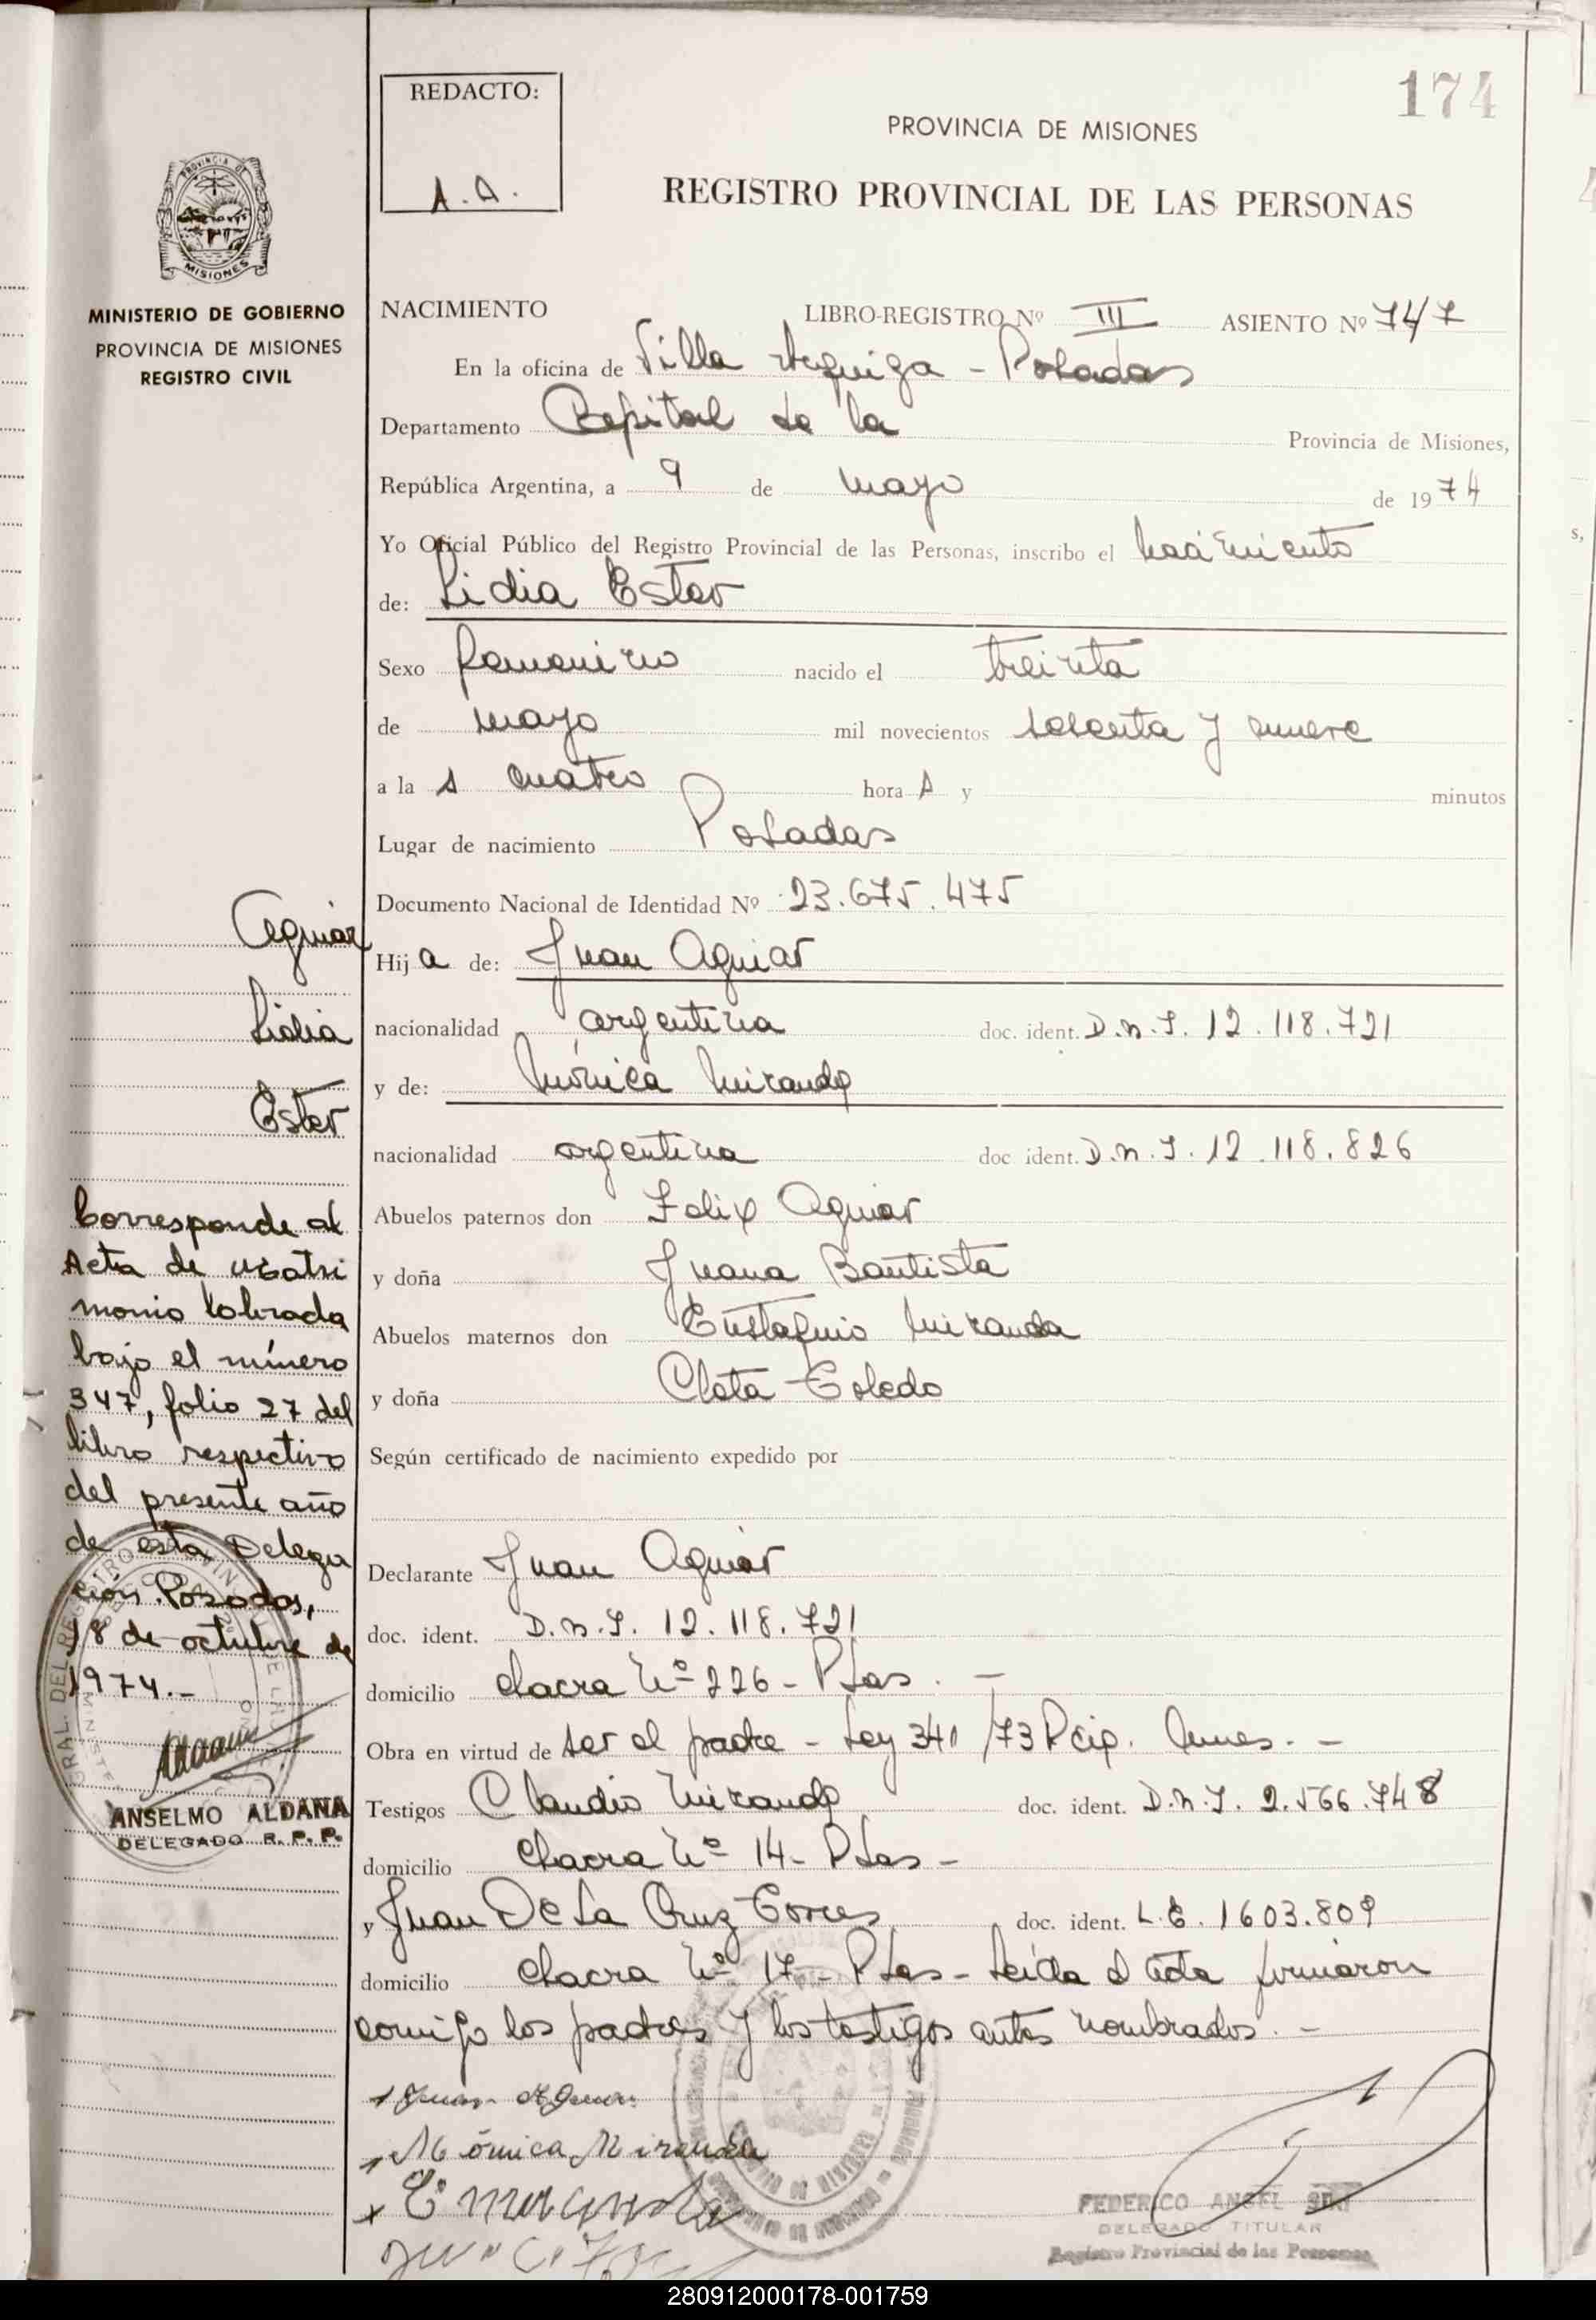 174
REDACTO:
A.A.
PROVINCIA DE MISIONES
REGISTRO PROVINCIAL DE LAS PERSONAS
PROVINCIA DE
MISIONES
MINISTERIO DE GOBIERNO
PROVINCIA DE MISIONES
REGISTRO CIVIL
NACIMIENTO LIBRO-REGISTRO Nº III ASIENTO Nº 747
En la oficina de Villa Urquiza - Posadas
Departamento Capital de la Provincia de Misiones,
República Argentina, a 9 de mayo de 1974
Yo Oficial Público del Registro Provincial de las Personas, inscribo el nacimiento
de: Lidia Ester
Sexo femenino nacido el treinta
de mayo mil novecientos sesenta y nueve
a la s cuatro hora s y minutos
Lugar de nacimiento Posadas
Documento Nacional de Identidad Nº 23.675.475
Hij a de: Juan Aguiar
nacionalidad argentina doc. ident. D.n.I. 12.118.721
y de: Mónica Miranda
nacionalidad argentina doc ident. D.n.I. 12.118.826
Abuelos paternos don Felix Aguiar
y doña Juana Bautista
Abuelos maternos don Eustaquio Miranda
y doña Cleta Toledo
Según certificado de nacimiento expedido por
Declarante Juan Aguiar
doc. ident. D.n.I. 12.118.721
domicilio chacra Nº 226 - Pdas. -
Obra en virtud de ser el padre - Ley 340/73 Pcia. -
Testigos Claudio Miranda doc. ident. D.n.I. 2.566.748
domicilio Chacra Nº 14 - Pdas -
y Juan De La Cruz Torres doc. ident. L.E. 1603.809
domicilio chacra Nº 17 - Pdas - Leida el acta firmaron
comigo los padres y los testigos antes nombrados. -
Juan Aguiar
Mónica Miranda
C Miranda
FEDERICO ANGEL
DELEGADO TITULAR
Registro Provincial de las Personas
Aguiar
Lidia
Ester
Corresponde al
Acta de matri
monio labrada
bajo el número
347, folio 27 del
libro respectivo
del presente año
de esta Delega
ción. Posadas,
18 de octubre de
1974.-
ANSELMO ALDANA
DELEGADO R. P. P.
280912000178-001759